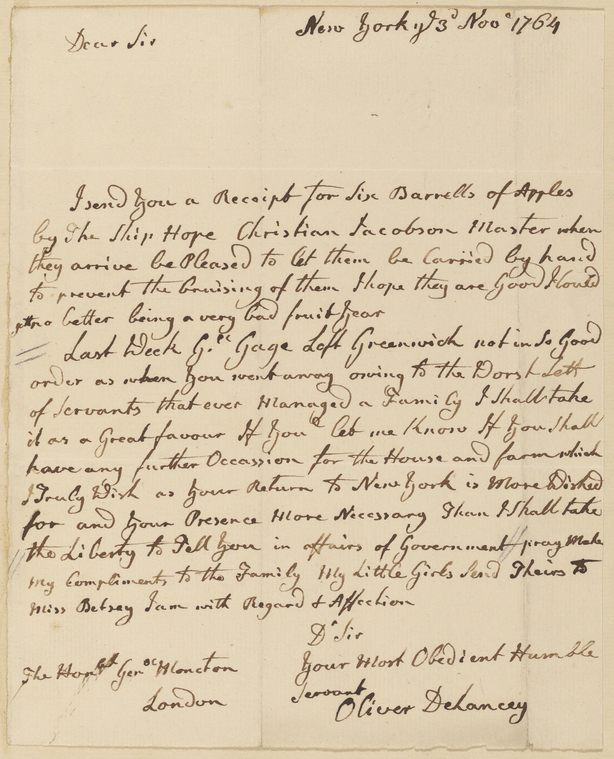 New York ye 3d Novr 1764
Dear Sir
I send You a Receipt for Six Barrells of Apples
by The Ship Hope Christian Jacobson Master when
they arrive be Pleased to let them be Carried by hand
to prevent the bruising of them I hope they are Good I Could
no better being a very bad fruit Year
Last Week Gll Gage Left Greenwich not in So Good
order as when You went away owing to the Worst Sett
of Servants that ever Managed a Family I Shall take
it as a Great favour If Youd let me Know If You Shall
have any further Occassion for the House and farm which
I Truly Wish as Your Return to New York is More Wished
for and Your Presence More Necessary Than I Shall take
the Liberty to Tell You in affairs of Government pray Make
My Compliments to the Family My Little Girls Send Theirs to
Miss Betsey I am with Regard & Affection
Dr Sir
Your Most Obedient Humble
Servant
Oliver DeLancey
The Honble Genll Monckton
London